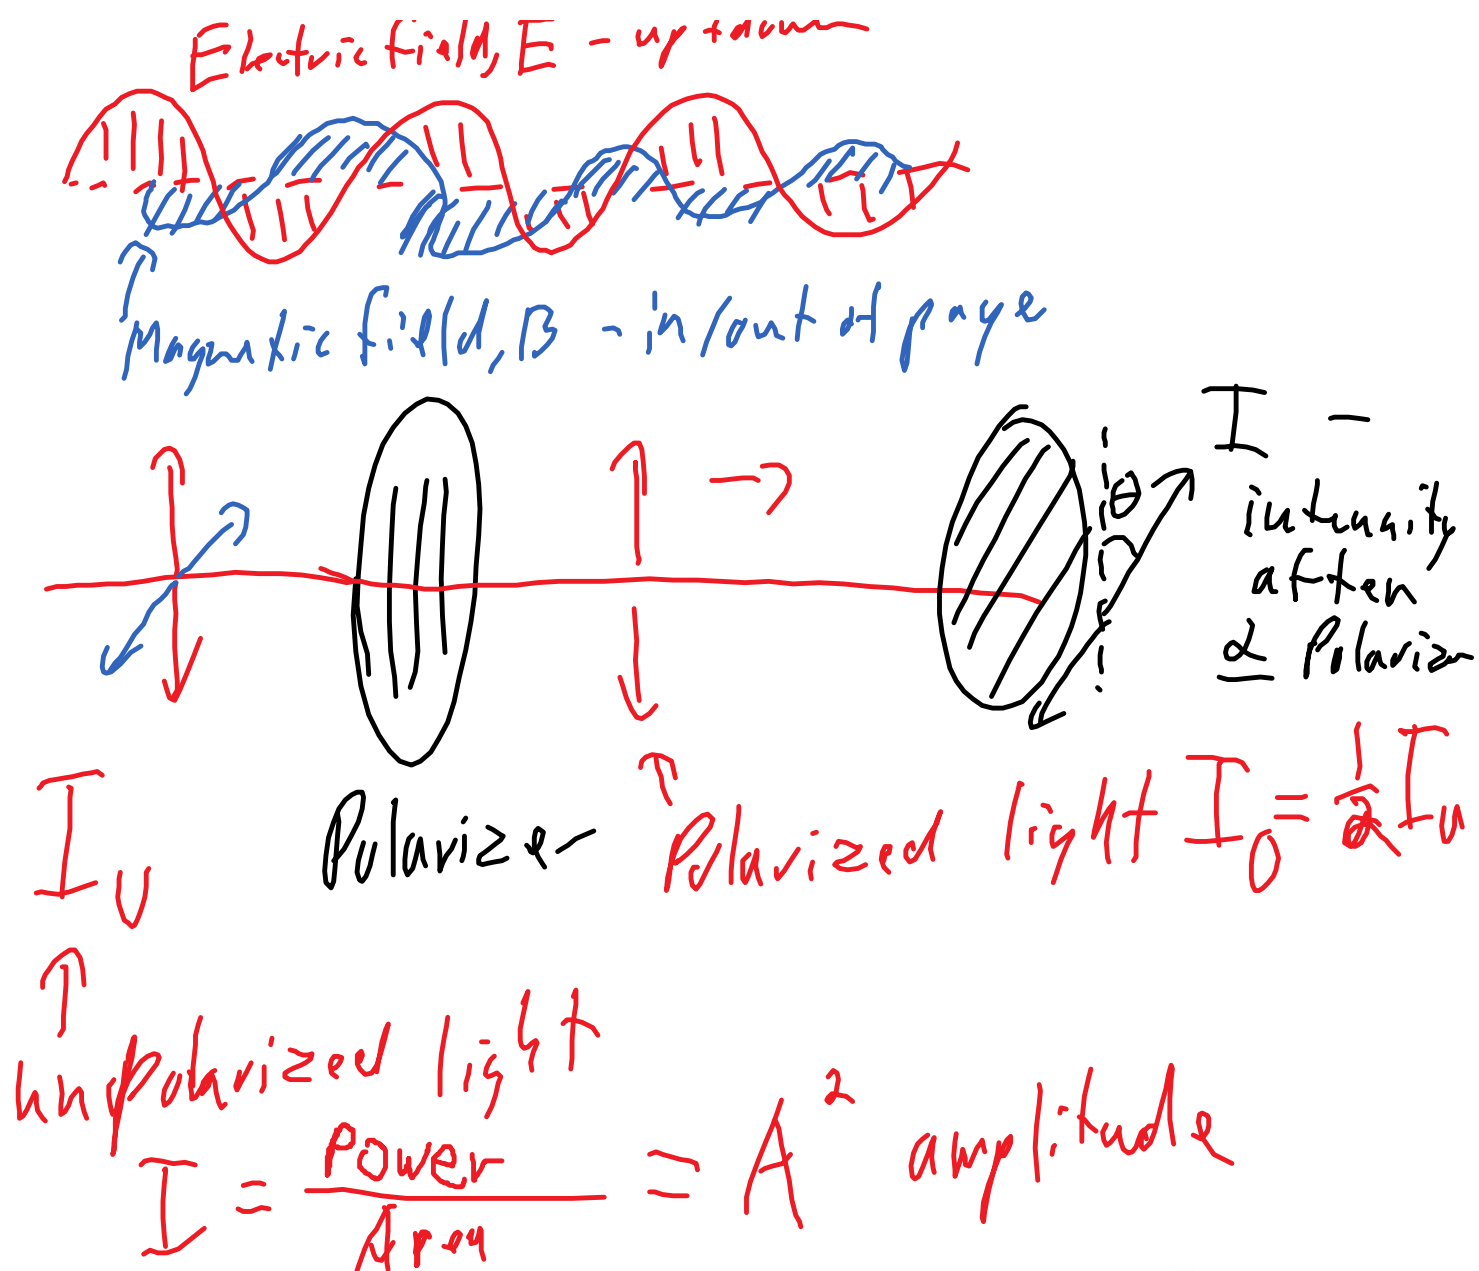 Electric field, E - up + down
Magnetic field, B - in/out of page
θ
I -
intensity
after
2 Polarizer
I_U
Polarizer
Polarized light I_0 = 1/2 I_u
unpolarized light
I = Power/Area = A^2 amplitude